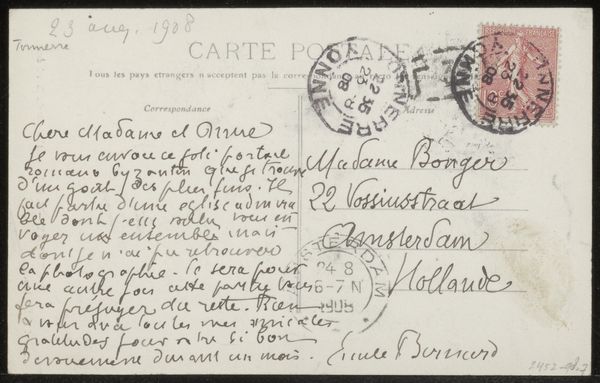 23 aug. 1908
Tonnerre
CARTE POSTALE
Tous les pays étrangers n'acceptent pas la correspondance
Correspondance
Adresse
TONNERRE YONNE
22 35
23 8
08
TONNERRE YONNE
22 35
23 8
08
Chère Madame et Amie
Je vous envoie ce joli portail
romano byzantin que je trouve
d'un goût des plus fins. Il
fait partie d'une église admira
ble dont j'eusse voulu vous en
voyer un ensemble mais
dont je n'ai pu retrouver
la photographie. Ce sera pour
une autre fois cette partie vous
fera préjuger du reste. Bien
à vous avec toutes mes amicales
gratitudes pour votre si bon
dévouement durant un mois.
Emile Bernard
Madame Bonger
22 Vossiusstraat
Amsterdam
Hollande
AMSTERDAM
24 8
6-7 N
1908